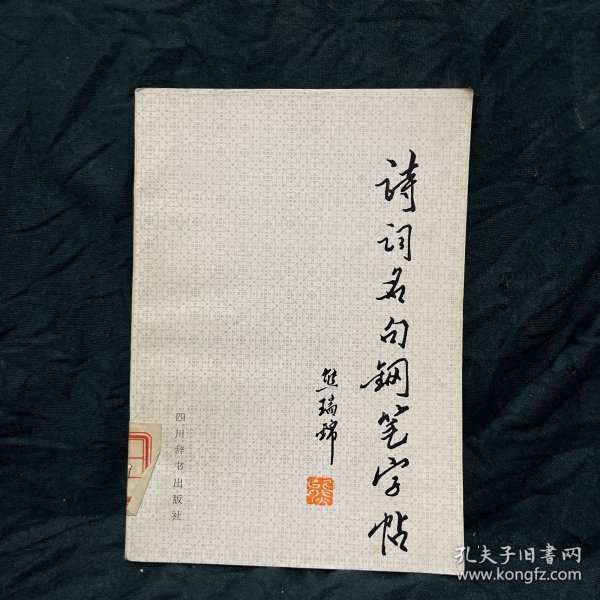 诗词名句钢笔字帖
熊瑞锦
四川辞书出版社
孔夫子旧书网
www.kongfz.com